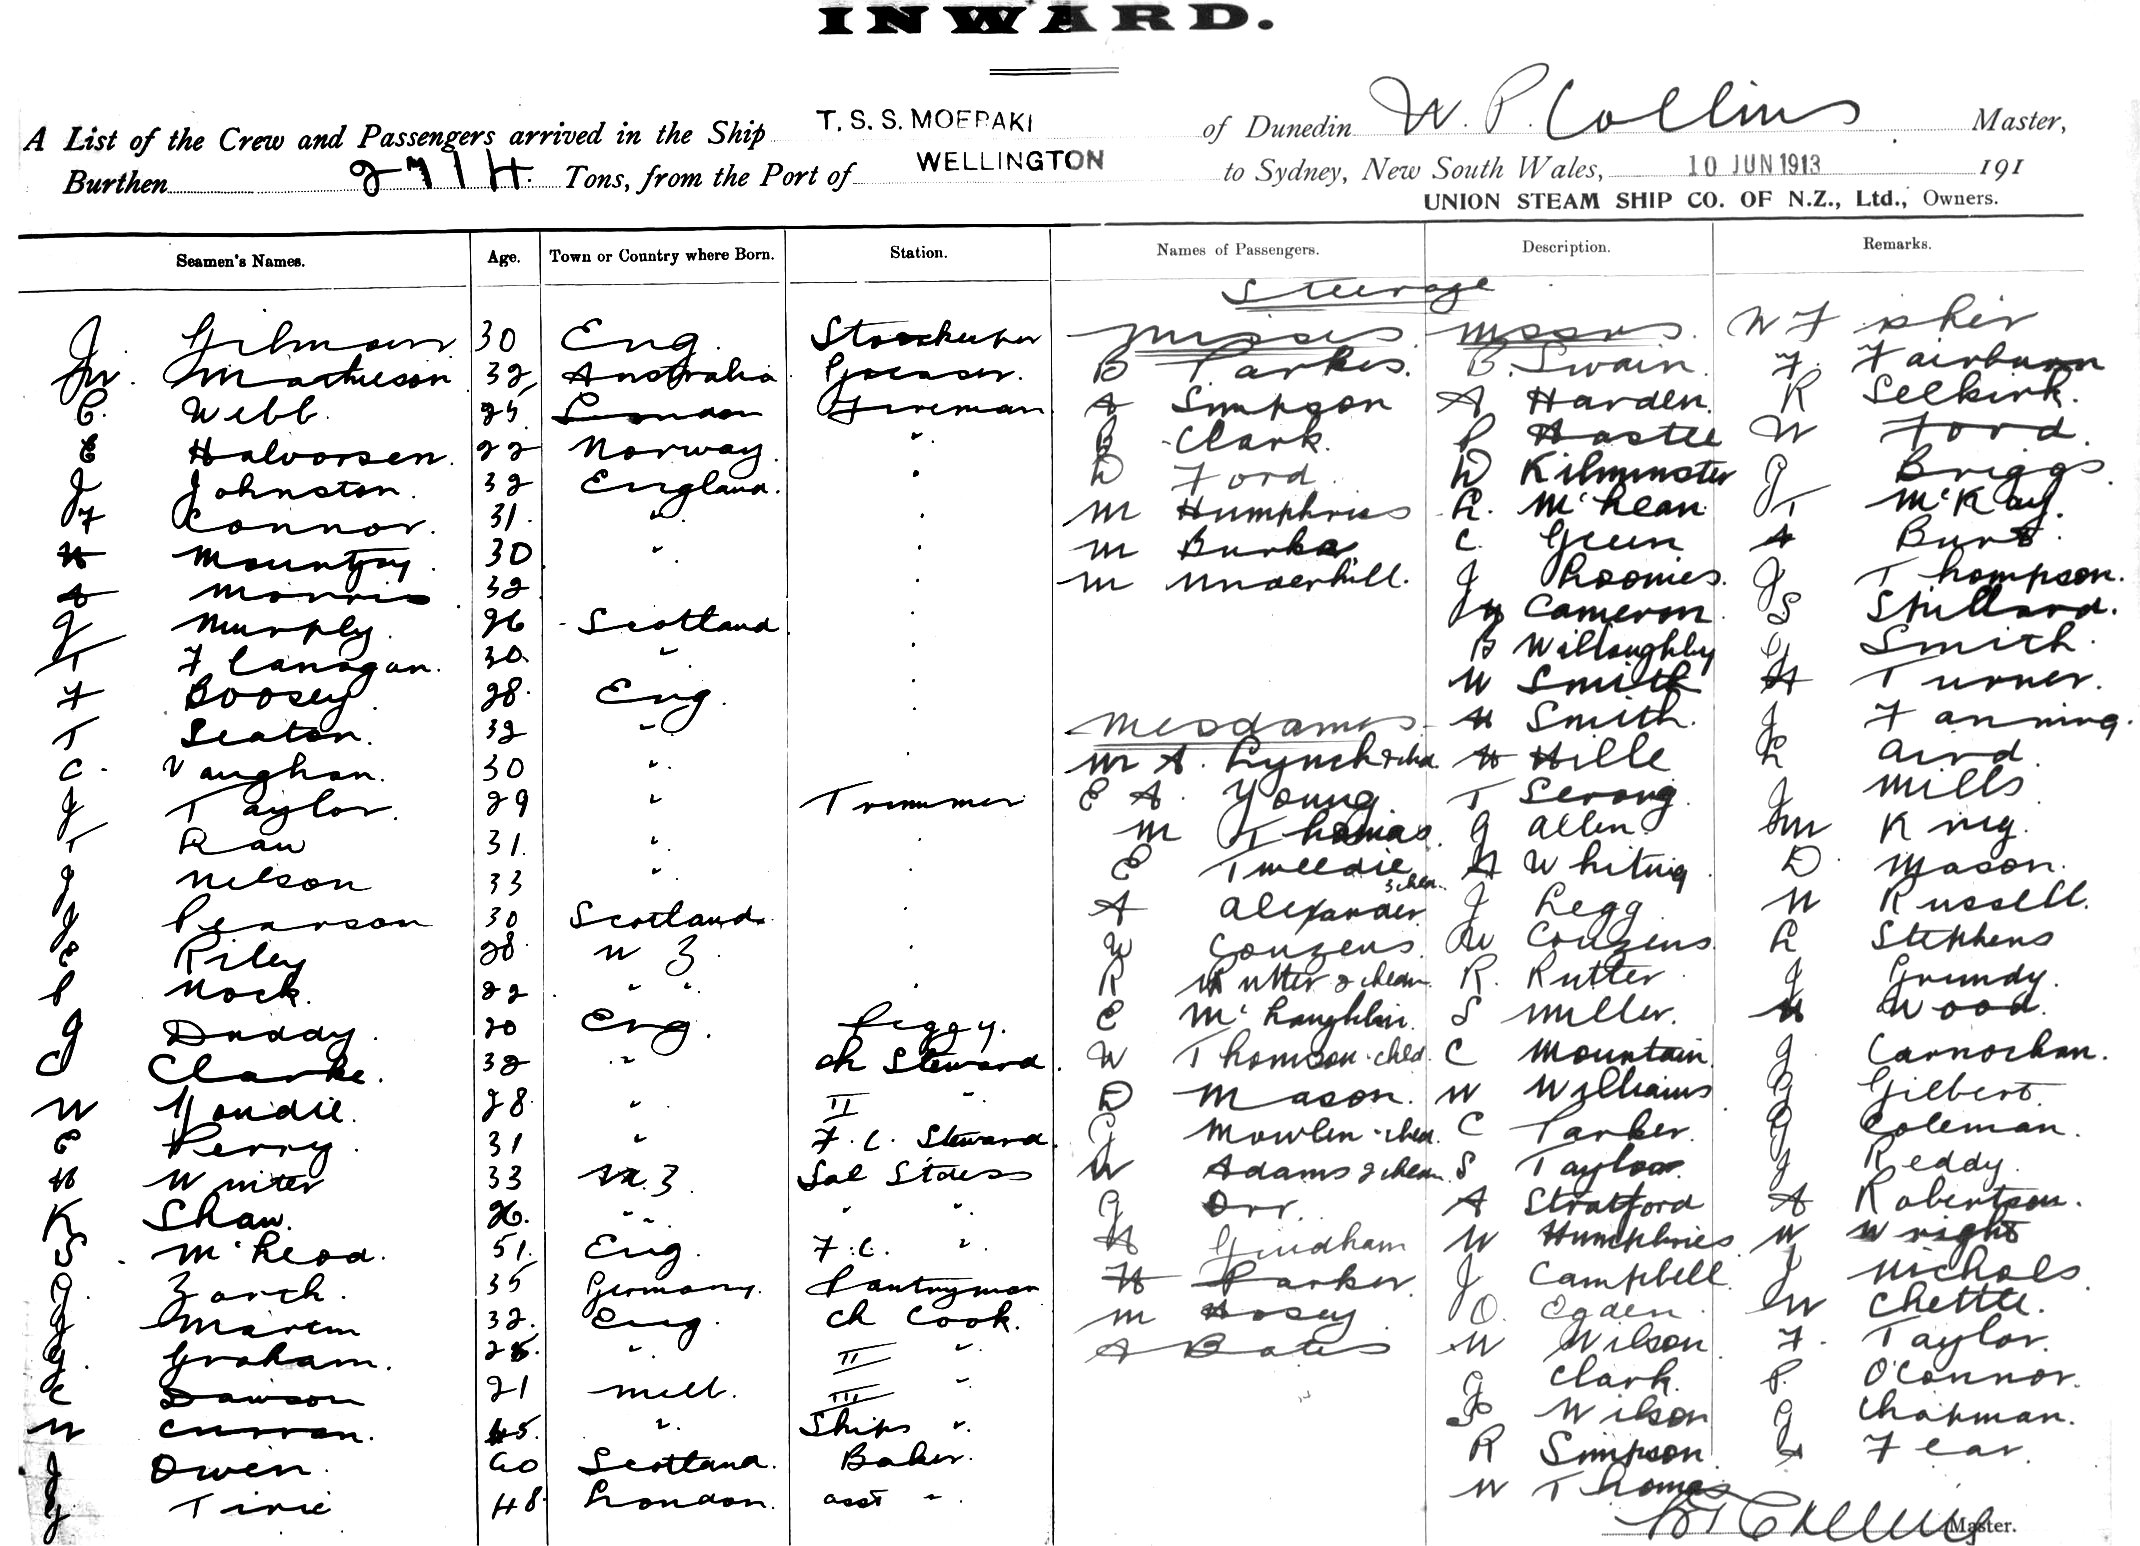 INWARD.
A List of the Crew and Passengers arrived in the Ship T. S. S. MOERAKI of Dunedin W. P. Collins Master,
Burthen 2714. Tons, from the Port of WELLINGTON to Sydney, New South Wales, 10 JUN 1913 191
UNION STEAM SHIP CO. OF N.Z., Ltd., Owners.
Seamen's Names. Age. Town or Country where Born. Station. Names of Passengers. Description. Remarks.
Steerage
J Gilmour 30 Eng. Storekeeper Misses Messrs. W Fisher
Jn. Mathieson 32 Australia Greaser. B Parkes. B. Swain F. Fairburn
C. Webb. 25 London Fireman A Simpson A Harden. R Selkirk.
E Halvorsen. 22 Norway. " B Clark. P Hastie W Ford.
J Johnston. 32 England. " D Ford D Kilminster J Briggs
F Connor. 31. " " M Humphries L. McLean T McKay.
H 30 " " M Burke C. Green A Burt.
A Morris 32 " M Underhill. J Loomes. J Thompson.
J Murphy. 26 Scotland " Cameron S Spillard.
T Flanagan. 30. " " B Willoughby G Smith.
F Boosey 28. Eng. " W Smith A Turner.
T Seaton. 32 " Mesdames H Smith. J Fanning.
C. Vaughan. 30 " " M A. Lynch & chd. H Hille L Aird.
J Taylor. 29 " Trimmer E A. Young. T Strong J Mills
T Raw 31. " " M Thomas. G Allen. Jm King.
J Nelson 33 " " E Tweedie 3 chn. A Whiting D. Mason.
J Pearson 30 Scotland. " A Alexander J Legg W Russell.
E Riley 28. N Z. " W Couzens. W Couzens. L Stephens
P Nock. 22 " " " R Rutter 2 chdn. R. Rutter J Grundy.
J Duddy. 20 Eng. Peggy. E McLaughlin. S Miller. H Wood.
C Clarke. 32 " Ch Steward. W Thomson chld. C Mountain. J. Carnochan.
W Youdie. 28. " II " D Mason. W Williams G Gilbert.
E Perry. 31 " F. C. Steward. G Mowlen chld. C Parker. G Coleman.
H Winter 33 N.Z. Sal Stdess W Adams 2 chdn. S Taylor. J Reddy.
K Shaw. 26. " " " G Orr. A Stratford A Robertson.
S. McLeod. 51. Eng. F. C. " H Grindham W Humphries. W Wright
J. Zorch. 35 Germany. Pantryman H Parker. J Campbell. J Nichols
J Martin 32. Eng. Ch Cook. M Hosey O. Egden W Chettle.
G. Graham. 25. " II " A Bates W Wilson. F. Taylor.
C Dawson 21 Melb. III " J Clark. P. O'Connor.
W Curran. 45. " Ships " S Wilson G Chapman.
J Owen. 60 Scotland. Baker. R Simpson. Fear.
J Tirie 48. London. asst " W Thomas
W P Collins Master.